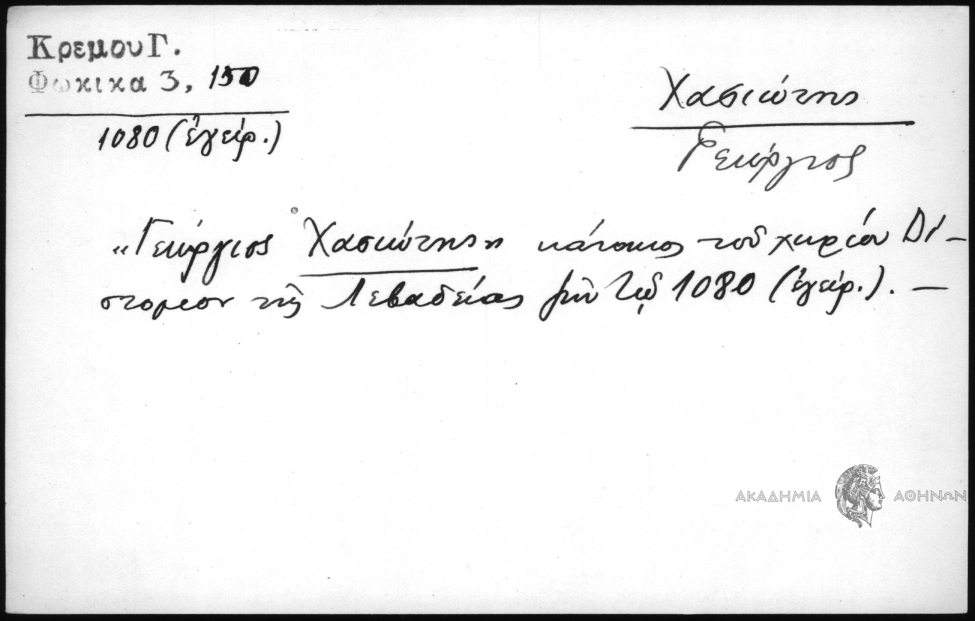 Κρεμου Γ.
Φωκικα 3, 150
1080 (ἐγείρ.)
Χασιώτης
Γεώργιος
"Γεώργιος Χασιώτης" κάτοικος τοῦ χωρίου Δί-
στομον τῆς Λεβαδείας ἐν τῷ 1080 (ἐγείρ.). —
ΑΚΑΔΗΜΙΑ ΑΘΗΝΩΝ